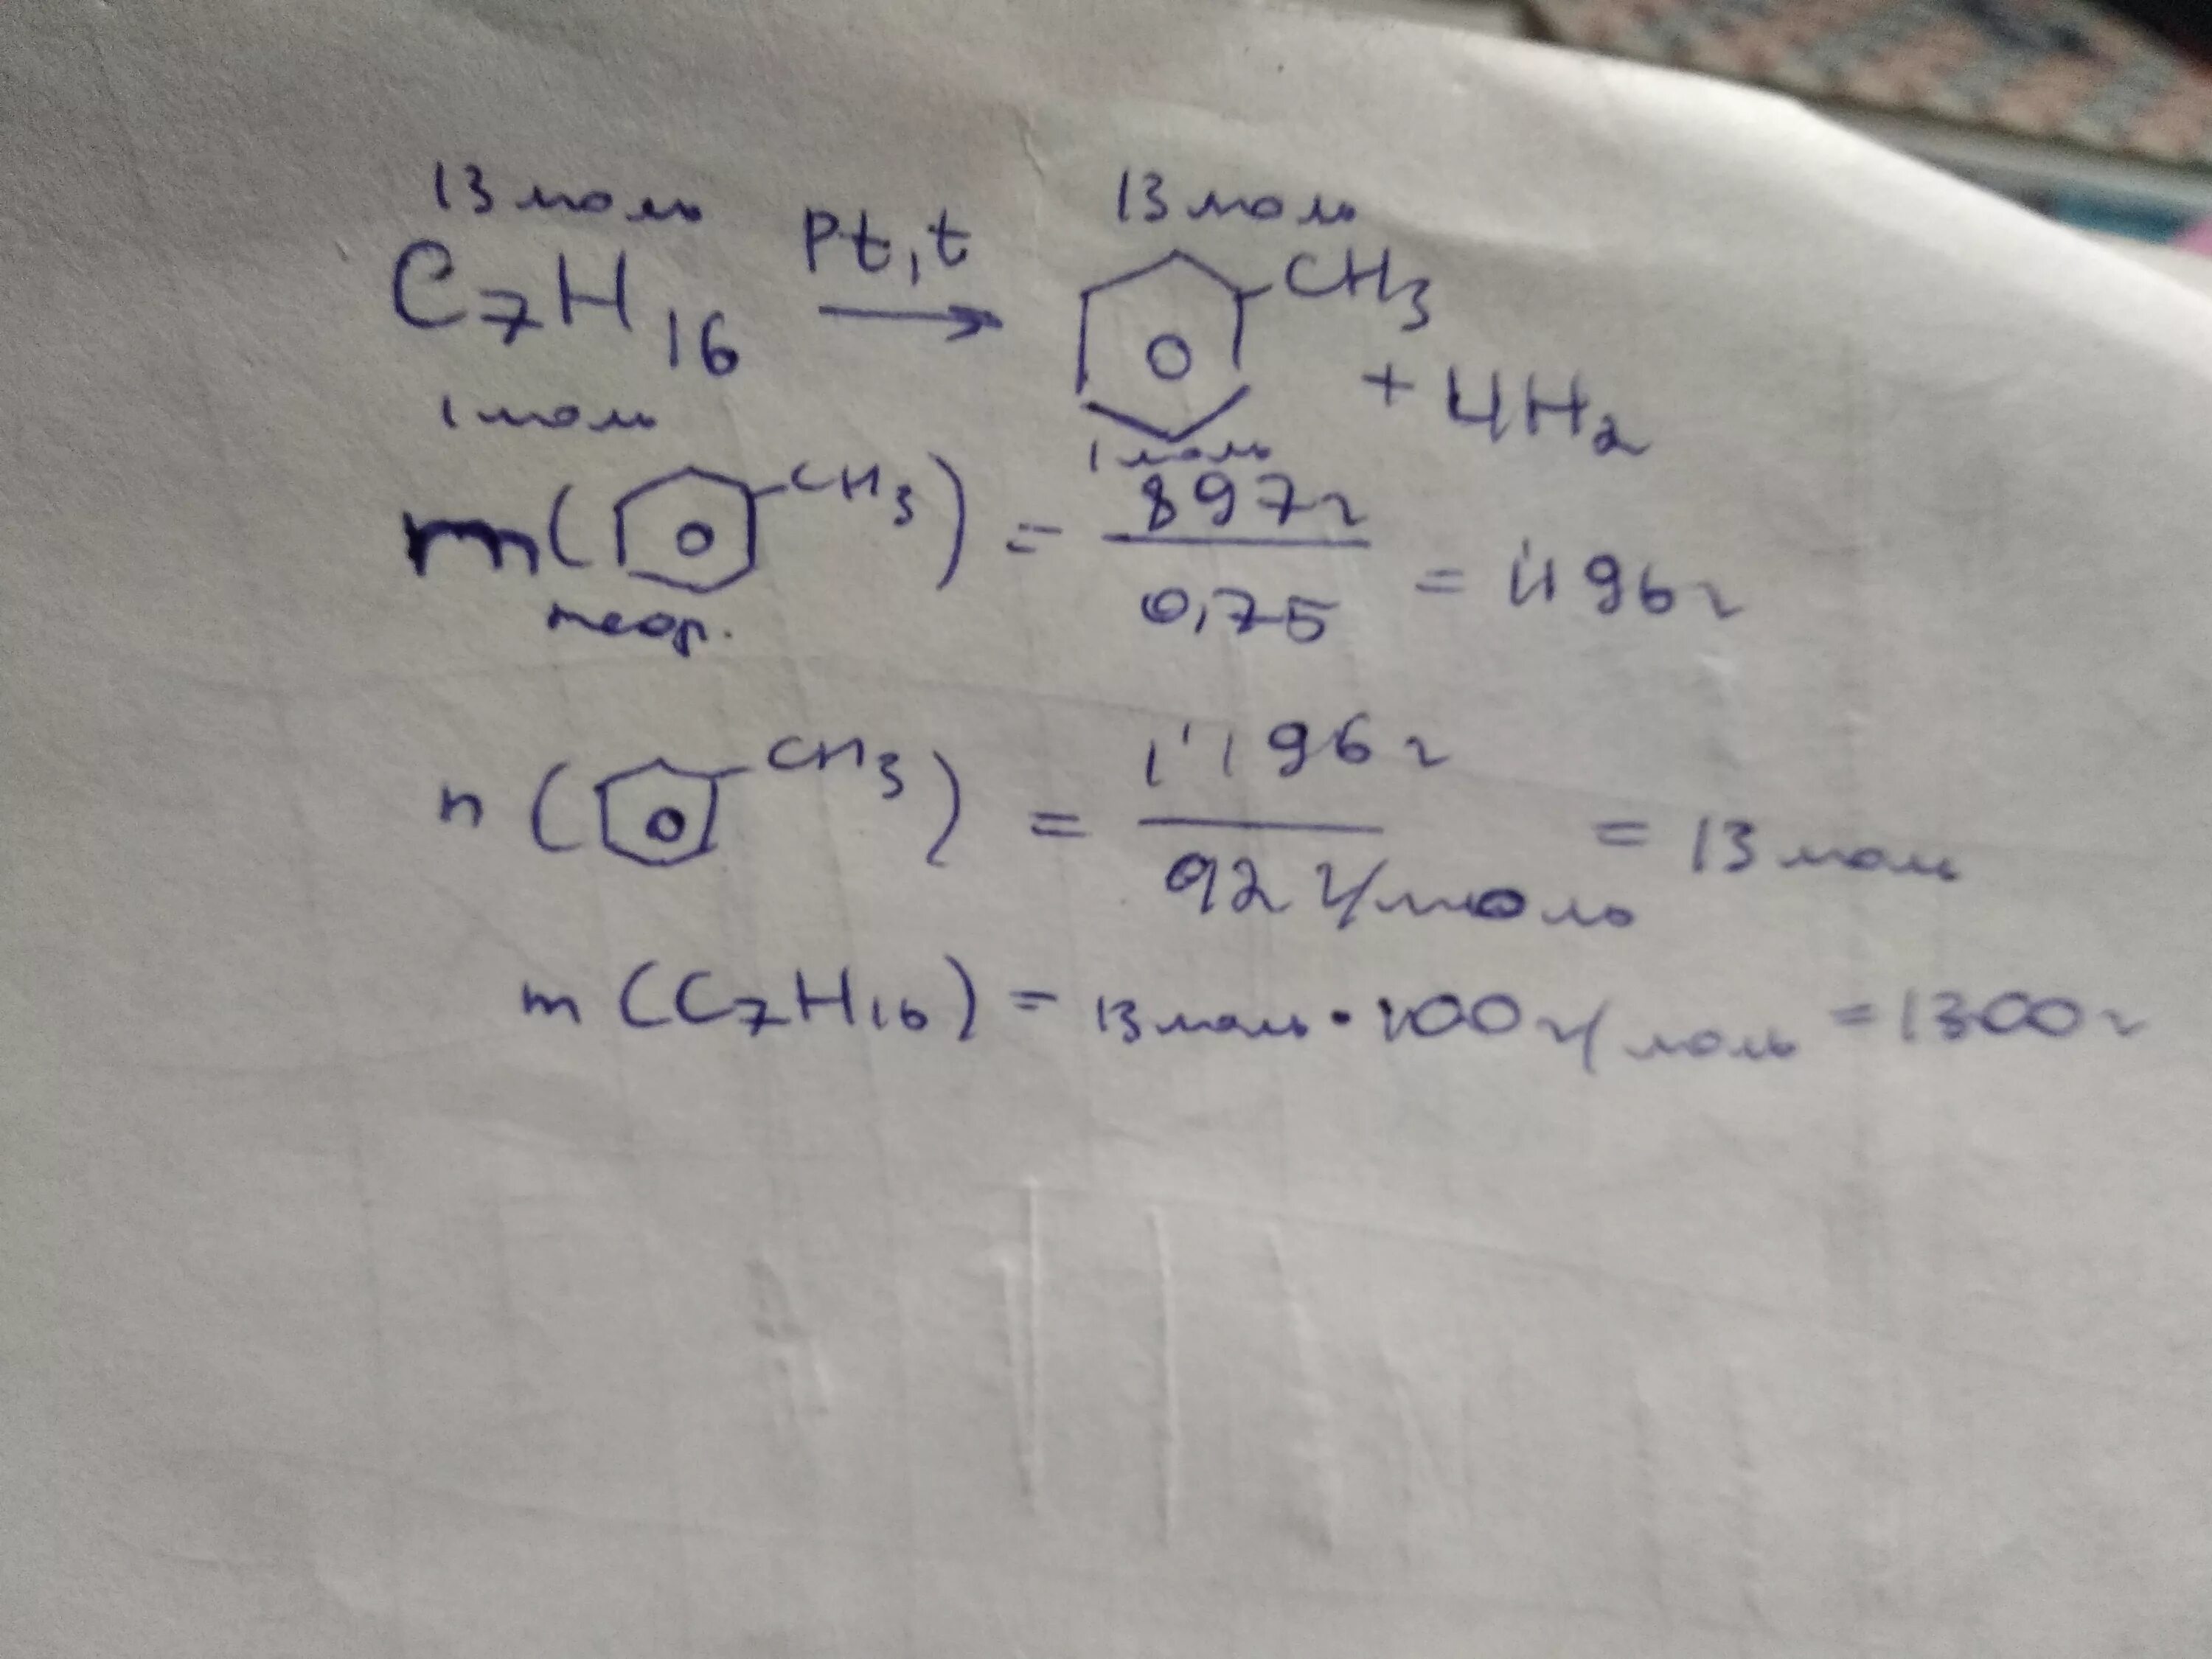 13 моль Pt, t 13 моль
C7H16 → CH3 + 4H2
1 моль 1 моль
m( CH3 ) = 897г / 0,75 = 1196г
теор.
n ( CH3 ) = 1196г / 92 г/моль = 13 моль
m (C7H16) = 13 моль · 100 г/моль = 1300г